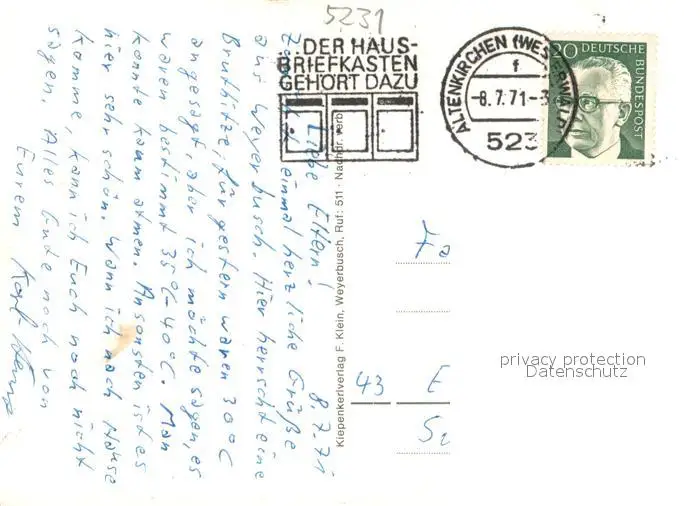 5231
DER HAUS-
BRIEFKASTEN
GEHÖRT DAZU
ALTENKIRCHEN (WESTERWALD)
f
-8.7.71-
523
20 DEUTSCHE
BUNDESPOST
8.7.71
Liebe Eltern!
Zunächst einmal herzliche Grüße
aus Weyerbusch. Hier herrscht eine
Bruthitze, für gestern waren 30°C
angesagt, aber ich möchte sagen, es
waren bestimmt 35°C-40°C. Man
konnte kaum atmen. Ansonsten ist es
hier sehr schön. Wann ich nach Hause
komme, kann ich Euch noch nicht
sagen. Alles Gute noch von
Eurem Karl Heinz
Kiepenkerlverlag F. Klein, Weyerbusch, Ruf: 511 · Nachdr. verb.
Fa
43 E
privacy protection
Datenschutz